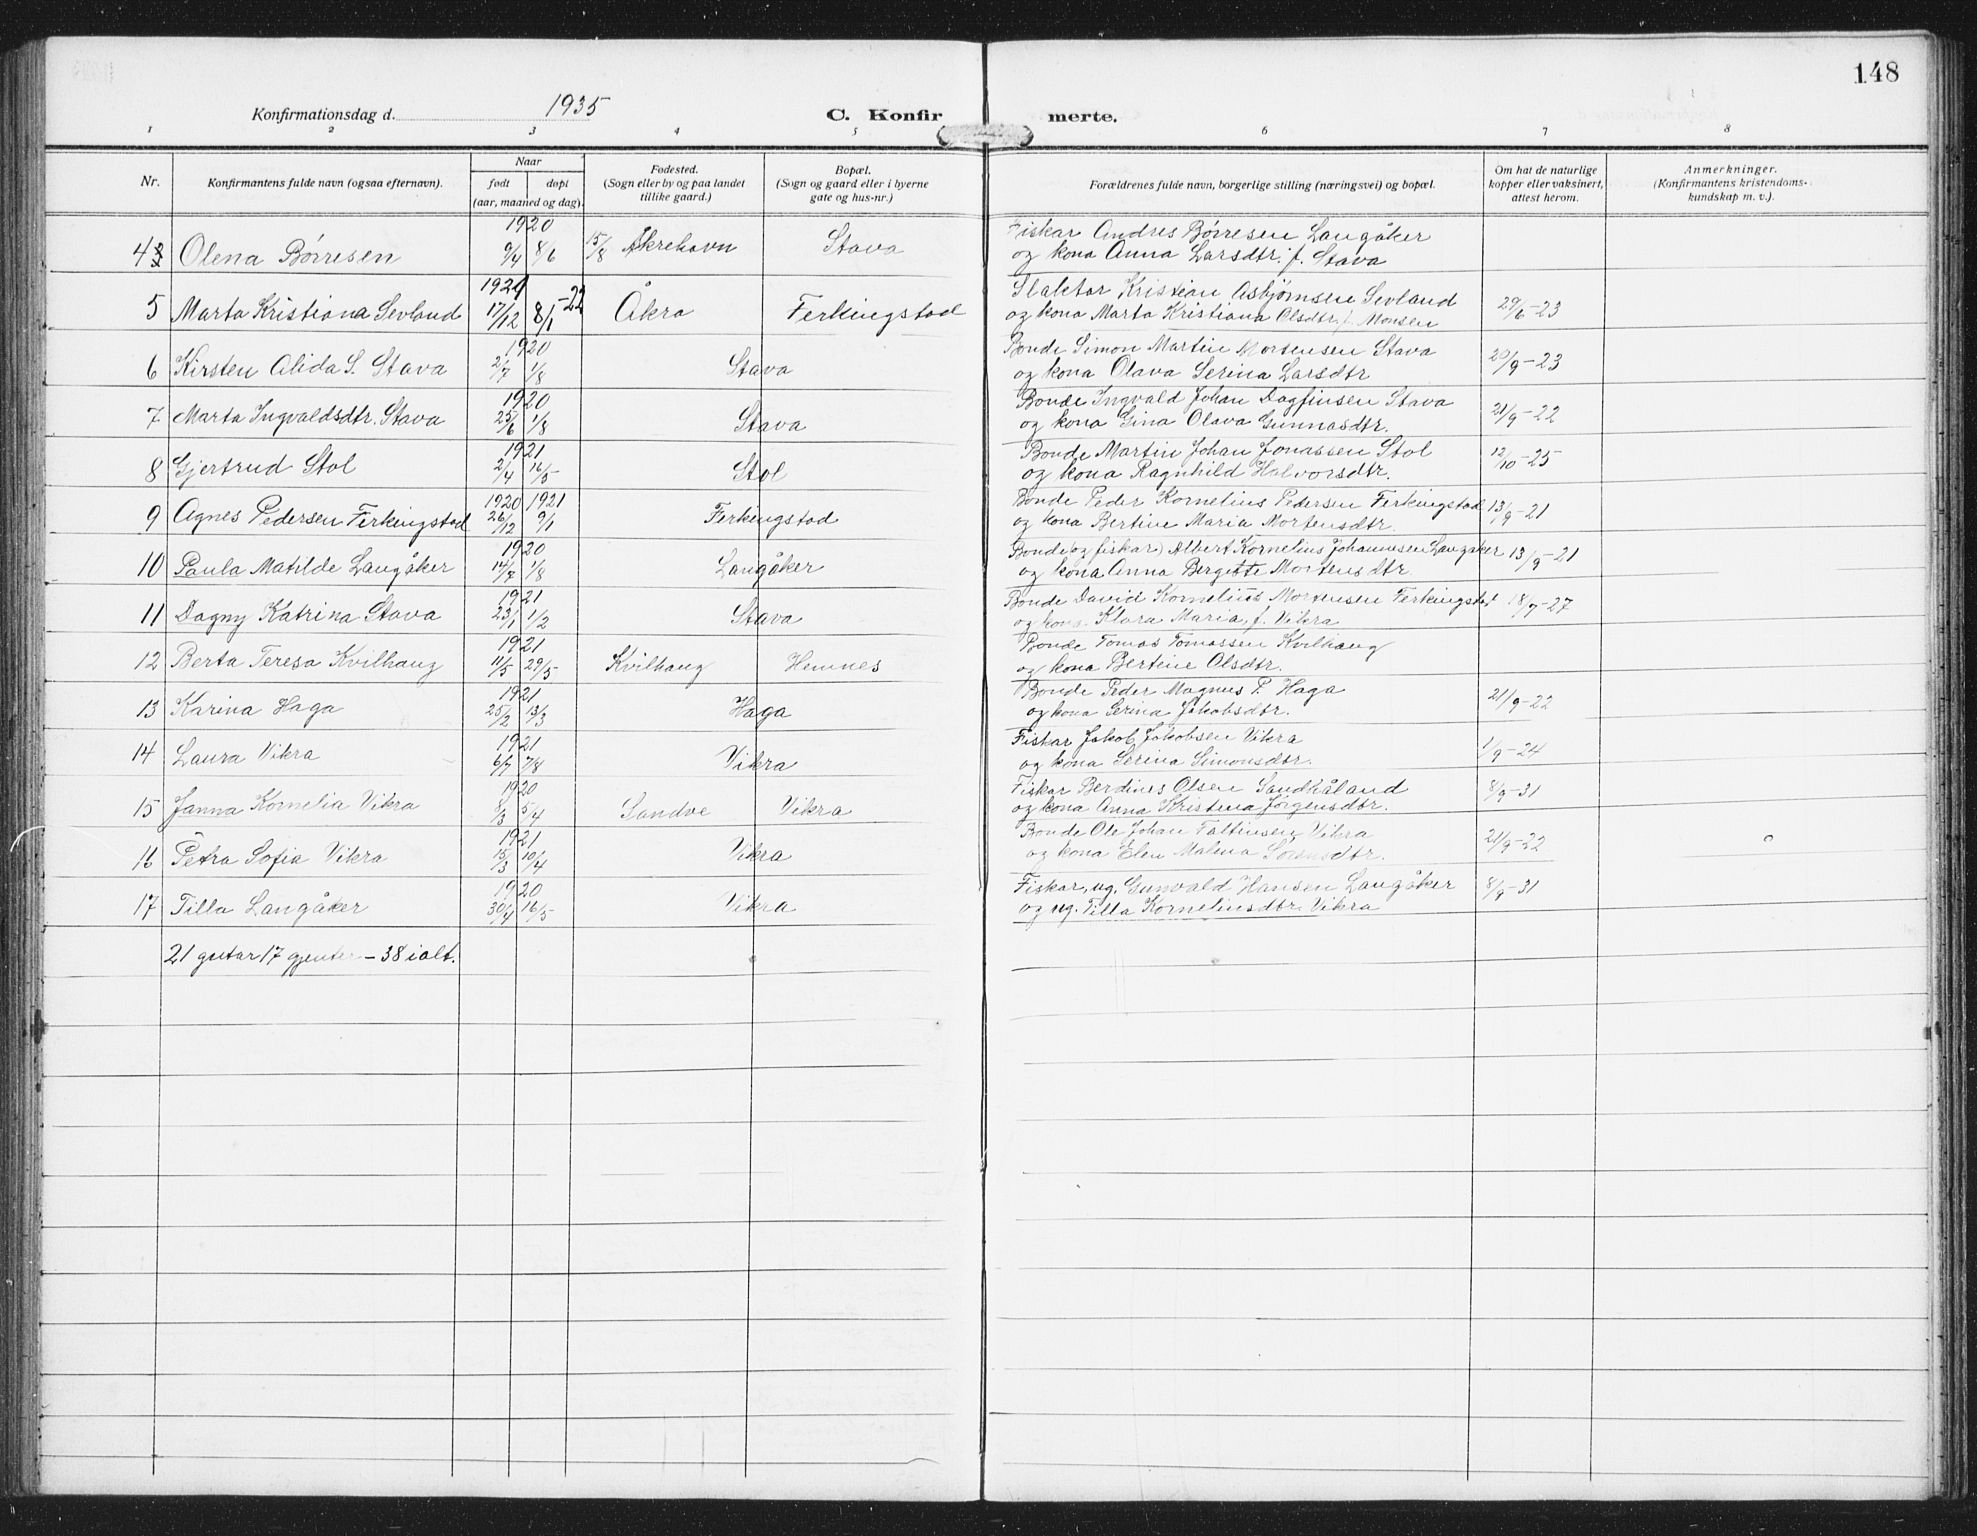 148
Konfirmationsdag d. 1935 C. Konfirmerte.
1 2 3 4 5 6 7 8
Nr. Konfirmantens fulde navn (ogsaa efternavn). Naar født døpt (aar, maaned og dag). Fødested. (Sogn eller by og paa landet tillike gaard.) Bopæl. (Sogn og gaard eller i byerne gate og hus-nr.) Forældrenes fulde navn, borgerlige stilling (næringsvei) og bopæl. Om hat de naturlige kopper eller vaksinert, attest herom. Anmerkninger. (Konfirmantens kristendomskundskap m. v.).
1920 Fiskar Andres Børresen Langåker
4 Olena Børresen 9/4 8/6 15/8 Åkrehavn Stava og kona Anna Larsdtr. f. Stava
1921 -22 Slaktar Kristian Asbjørnsen Sevland
5 Marta Kristiana Sevland 17/12 8/1 Åkra Ferkingstad og kona Marta Kristiana Olsdtr. f. Monsen 29/6-23
1920 Bonde Simon Martin Mortensen Stava
6 Kirsten Alida S. Stava 2/7 1/8 Stava og kona Olava Serina Larsdtr 20/9-23
1920 Bonde Ingvald Johan Dagfinsen Stava
7 Marta Ingvaldsdtr. Stava 25/6 1/8 Stava og kona Gina Olava Gunnasdtr. 21/9-22
1921 Bonde Martin Johan Jonassen Stol
8 Gjertrud Stol 2/4 16/5 Stol og kona Ragnhild Halvorsdtr. 12/10-25
1920 1921 Bonde Peder Kornelius Pedersen Ferkingstad
9 Agnes Pedersen Ferkingstad 26/12 9/1 Ferkingstad og kona Bertine Maria Mortensdtr. 13/9-21
1920 Bonde (og fiskar) Albert Kornelius Johannesen Langåker
10 Paula Matilde Langåker 14/7 1/8 Langåker og kona Anna Bergitte Mortensdtr 13/9-21
1921 Bonde David Kornelius Mortensen Ferkingstad
11 Dagny Katrina Stava 23/1 1/2 Stava og kona Klara Maria, f. Vikra 18/7-27
1921 Bonde Tomas Tomassen Kvilhaug
12 Berta Teresa Kvilhaug 11/5 29/5 Kvilhaug Hemnes og kona Bertine Olsdtr.
1921 Bonde Peder Magnus P. Haga
13 Karina Haga 25/2 13/3 Haga og kona Serina Jakobsdtr. 21/9-22
1921 Fiskar Jakob Jakobsen Vikra
14 Laura Vikra 6/7 7/8 Vikra og kona Serina Simonsdtr. 1/9-24
1920 Fiskar Berdines Olsen Sandhåland
15 Janna Kornelia Vikra 8/3 5/4 Sandve Vikra og kona Anna Kristina Jørgensdtr. 8/9-31
1921 Bonde Ole Johan Faltinsen Vikra
16 Petra Sofia Vikra 15/3 10/4 Vikra og kona Elen Malena Sørensdtr. 21/9-22
1920 Fiskar, ug. Gunvald Hansen Langåker
17 Tilla Langåker 30/4 16/5 Vikra og ug. Tilla Korneliusdtr. Vikra 8/9-31
21 gutar 17 gjenter - 38 ialt.